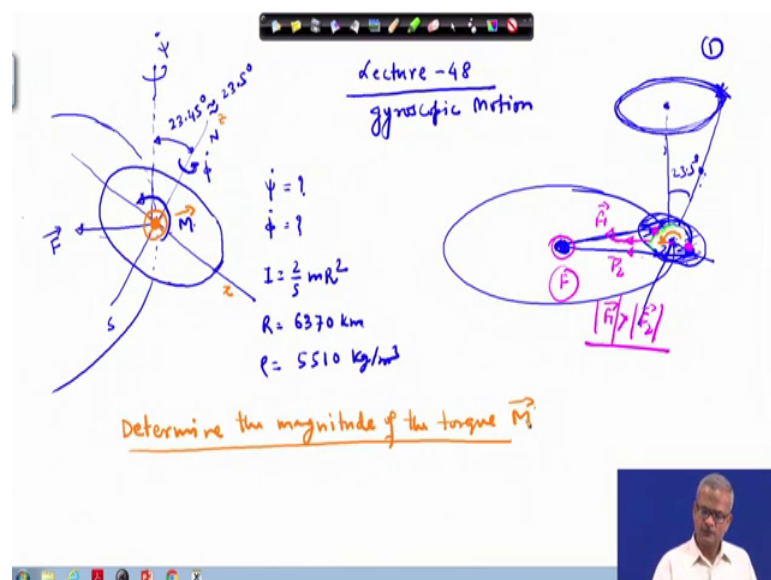 Lecture - 48
gyroscopic Motion
①
ψ̇
23.45° ≈ 23.5°
z
N
φ̇
F⃗
M⃗
x
S
ψ̇ = ?
φ̇ = ?
I = 2/5 mR²
R = 6370 km
ρ = 5510 kg/m³
23.5°
F⃗₁
F⃗₂
F⃗
|F⃗₁| > |F⃗₂|
Determine the magnitude of the torque M⃗.